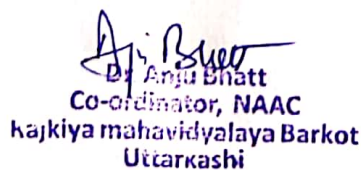 Anju Bhatt
Dr Anju Bhatt
Co-ordinator, NAAC
Rajkiya mahavidyalaya Barkot
Uttarkashi